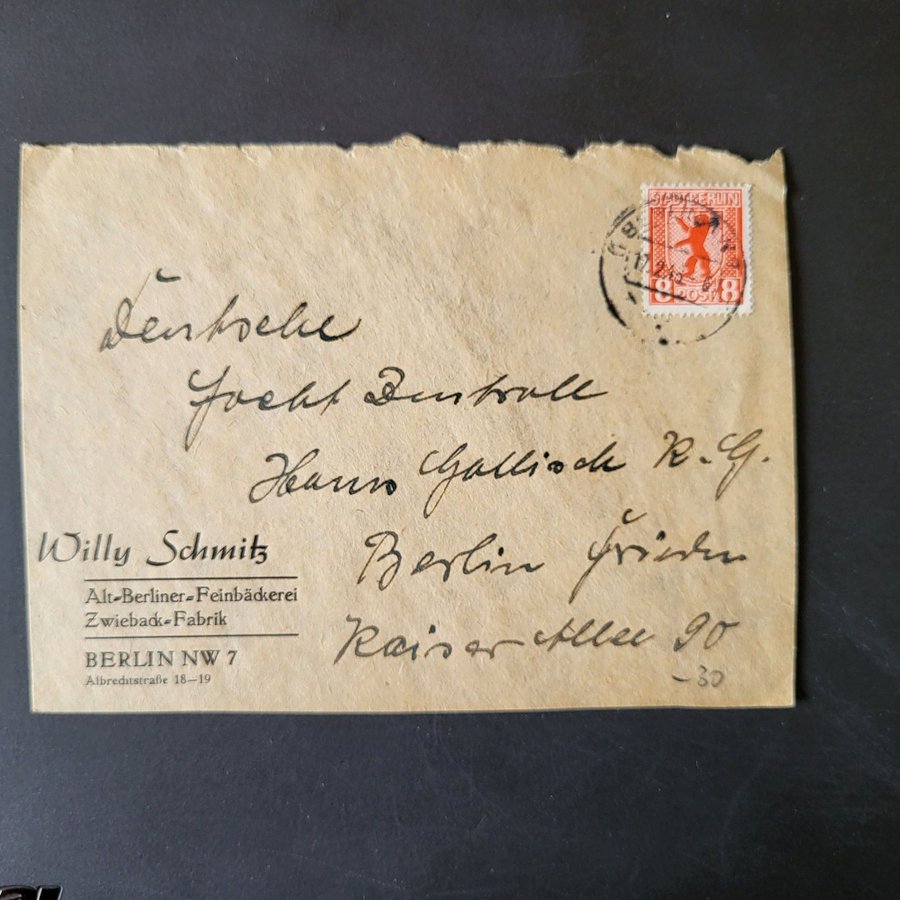 STADT BERLIN
8 POST 8
Deutsche
Hans K.-G.
Berlin Frieden
Kaiser Allee 90
-30
Willy Schmitz
Alt-Berliner-Feinbäckerei
Zwieback-Fabrik
BERLIN NW 7
Albrechtstraße 18—19